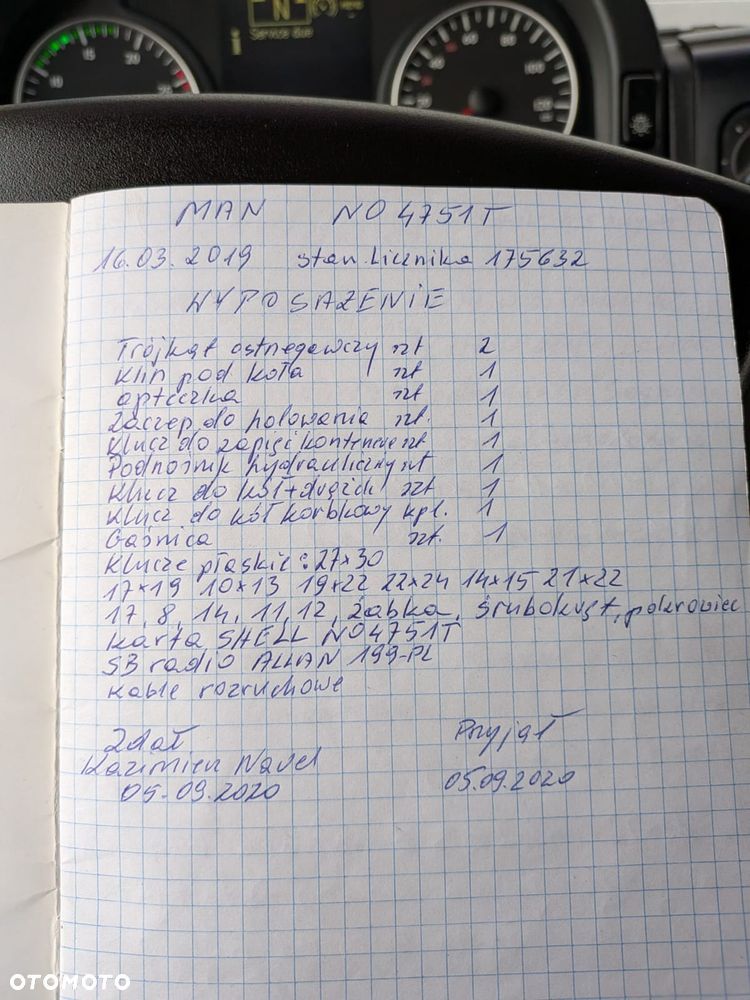 N
Service due
10 15 20 25
20 40 60 80 100 120
MAN NO 4751T
16.03.2019 stan licznika 175632
WYPOSAŻENIE
Trójkąt ostrzegawczy szt 2
Klin pod koła szt 1
apteczka szt 1
Zaczep do holowania szt. 1
Klucz do zapięć kontenera szt 1
Podnośnik hydrauliczny szt 1
Klucz do kół + drążek szt 1
Klucz do kół korbkowy kpl. 1
Gaśnica szt. 1
Klucze płaskie: 27×30
17×19 10×13 19×22 22×24 14×15 21×22
17, 8, 14, 11, 12, żabka, śrubokręt, pokrowiec
Karta SHELL NO4751T
SB radio ALLAN 199-PL
Kable rozruchowe
Zdał Przyjął
Kazimierz
05.09.2020 05.09.2020
OTOMOTO